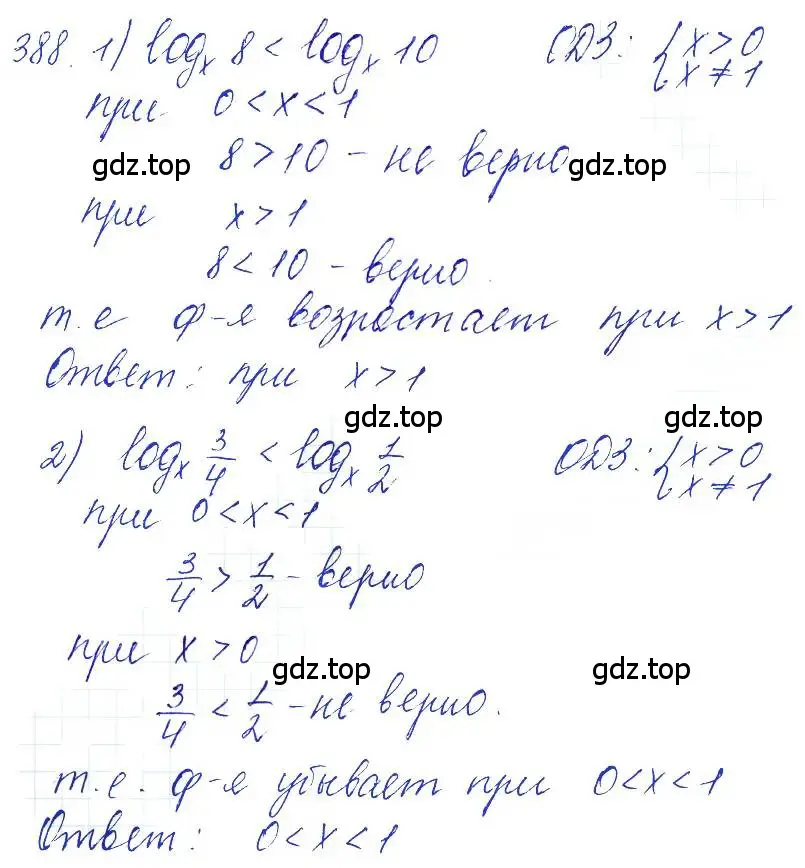 388. 1) log_x 8 < log_x 10 ОДЗ: { x > 0
x ≠ 1
при 0 < x < 1
gdz.top 8 > 10 – не верно gdz.top
при x > 1
8 < 10 – верно.
т.е ф-я возрастает при x > 1
Ответ: при x > 1
gdz.top
2) log_x 3/4 < log_x 1/2 ОДЗ: { x > 0
x ≠ 1
при 0 < x < 1
3/4 > 1/2 – верно
при x > 0
gdz.top gdz.top
3/4 < 1/2 – не верно.
т.е. ф-я убывает при 0 < x < 1
Ответ: 0 < x < 1